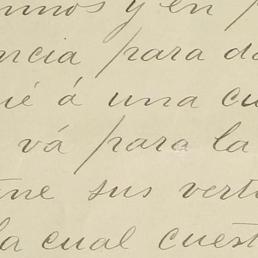 mnos y en p
ncia para da
ié á una cu
vá para la
ene sus vert
la cual cuest